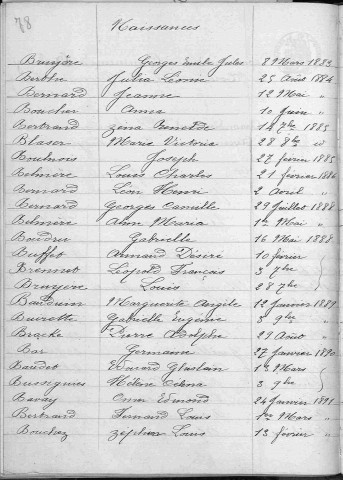 78
Naissances
Bruyère Georges Emile Jules 8 Mars 1883
Berthe Julia Léonie 25 Août 1884
Bernard Jeanne 12 Mai "
Boucher Anna 10 Juin "
Bertrand Zéna 14 7bre 1885
Blaser Marie Victoria 28 8bre "
Joseph 27 février 1885
Belmère Louis Charles 21 février 1886
Bernard Léon Henri 2 Avril "
Bernard Georges Camille 29 Juillet 1888
Belmère Anne Maria 1er Mai "
Baudru Gabrielle 16 Mai 1888
Buffet Armand Désiré 10 février
Bremmet Léopold François 3 7bre
Bruyère Louis 28 7bre
Bauduin Marguerite Angèle 12 Janvier 1889
Buirette Gabrielle Eugénie 5 9bre
Brocke Pierre Adolphe 21 Août "
Bar Germaine 27 Janvier 1890
Baudet Edward Ghislain 1er Mars
Bussegnies Hélène 3 9bre
Bavay Omer Edmond 24 Janvier 1891
Bertrand Fernand Louis 1er Mars "
Bouchez Zéphir Louis 13 février "